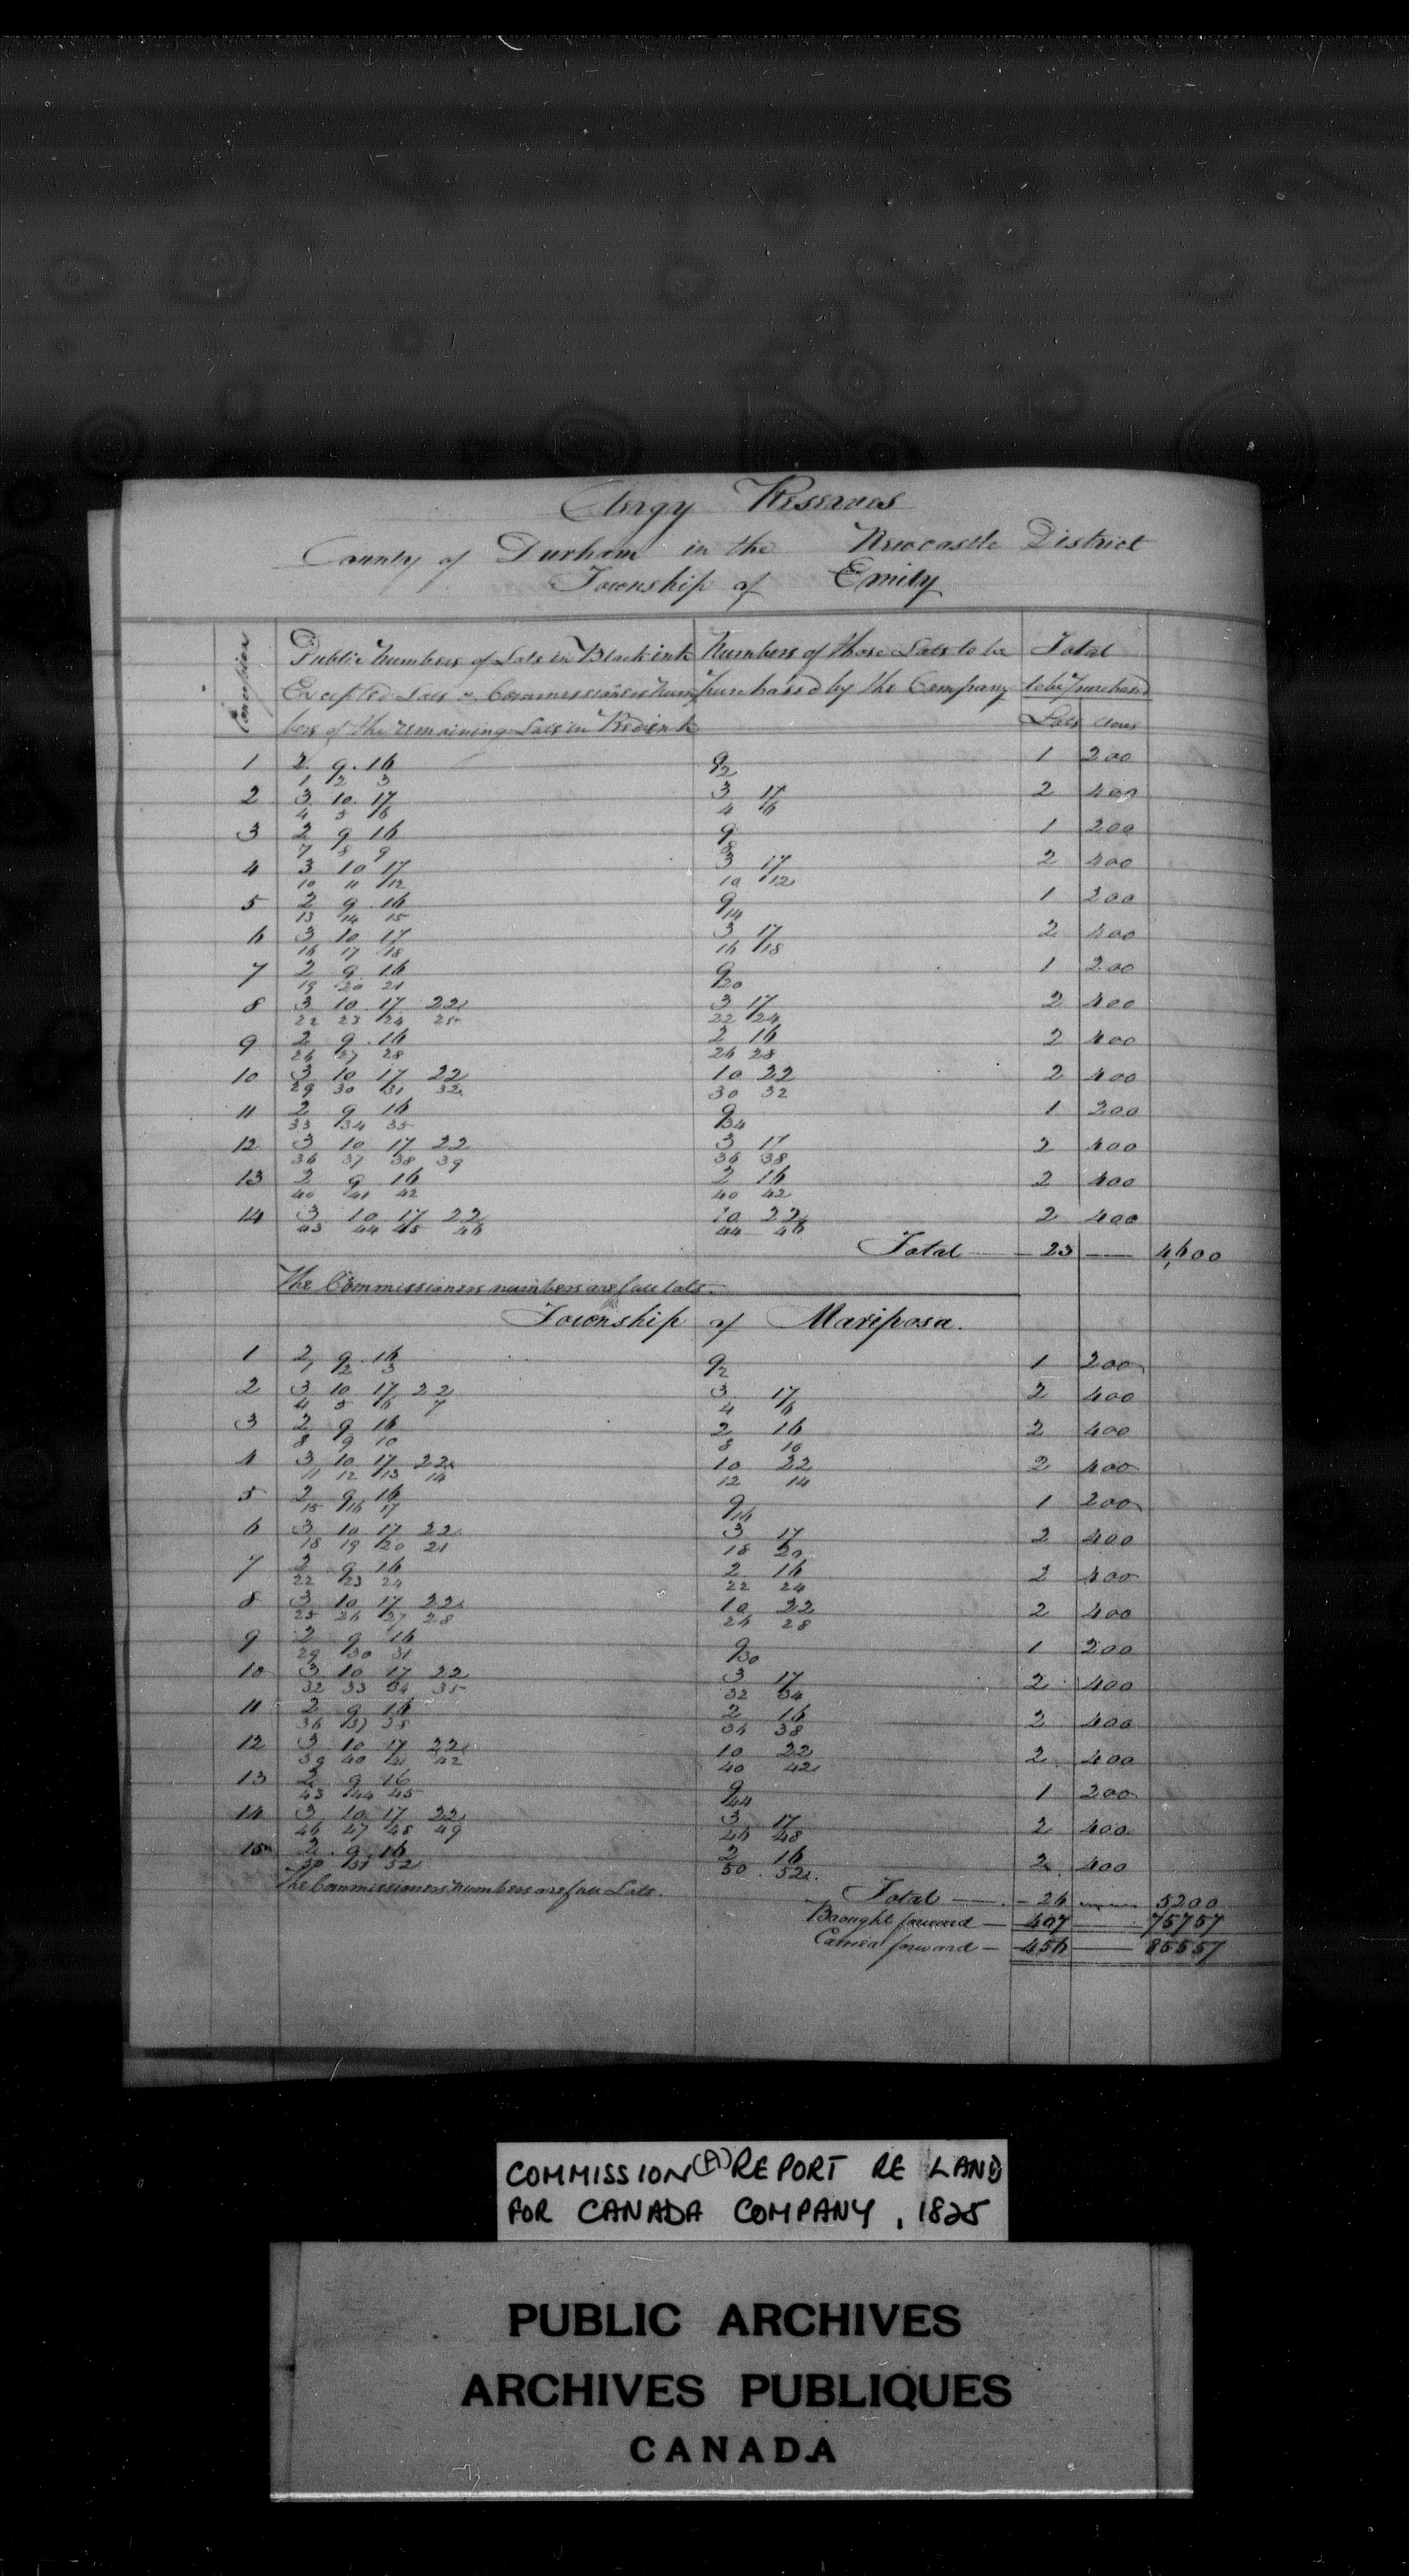 Clergy Reserves
County of Durham in the Newcastle District
Township of Emily
Concession
Public Numbers of Lots in Black ink Numbers of those Lots to be Total
Excepted Lots & Commissioners Num purchased by the Company to be Purchased
bers of the remaining Lots in Red ink Lots Acres
1 2 9 16 9 1 200
1 2 3 2
2 3 10 17 3 17 2 400
4 5 6 4 6
3 2 9 16 9 1 200
7 8 9 8
4 3 10 17 3 17 2 400
10 11 12 10 12
5 2 9 16 9 1 200
13 14 15 14
6 3 10 17 3 17 2 400
16 17 18 16 18
7 2 9 16 9 1 200
19 20 21 20
8 3 10 17 22 3 17 2 400
22 23 24 25 22 24
9 2 9 16 2 16 2 400
26 27 28 26 28
10 3 10 17 22 10 22 2 400
29 30 31 32 30 32
11 2 9 16 9 1 200
33 34 35 34
12 3 10 17 22 3 17 2 400
36 37 38 39 36 38
13 2 9 16 2 16 2 400
40 41 42 40 42
14 3 10 17 22 10 22 2 400
43 44 45 46 44 46
Total 23 4,600
The Commissioners numbers are full lots.
Township of Mariposa.
1 2 9 16 9 1 200
1 2 3 2
2 3 10 17 22 3 17 2 400
4 5 6 7 4 6
3 2 9 16 2 16 2 400
8 9 10 8 10
4 3 10 17 22 10 22 2 400
11 12 13 14 12 14
5 2 9 16 9 1 200
15 16 17 16
6 3 10 17 22 3 17 2 400
18 19 20 21 18 20
7 2 9 16 2 16 2 400
22 23 24 22 24
8 3 10 17 22 10 22 2 400
25 26 27 28 26 28
9 2 9 16 9 1 200
29 30 31 30
10 3 10 17 22 3 17 2 400
32 33 34 35 32 34
11 2 9 16 2 16 2 400
36 37 38 36 38
12 3 10 17 22 10 22 2 400
39 40 41 42 40 42
13 2 9 16 9 1 200
43 44 45 44
14 3 10 17 22 3 17 2 400
46 47 48 49 46 48
15 2 9 16 2 16 2 400
50 51 52 50 52
The Commissioners numbers are full Lots.
Total 26 5200
Brought forward 407 75757
Carried forward 456 85557
COMMISSION (A) REPORT RE LAND
FOR CANADA COMPANY, 1825
PUBLIC ARCHIVES
ARCHIVES PUBLIQUES
CANADA